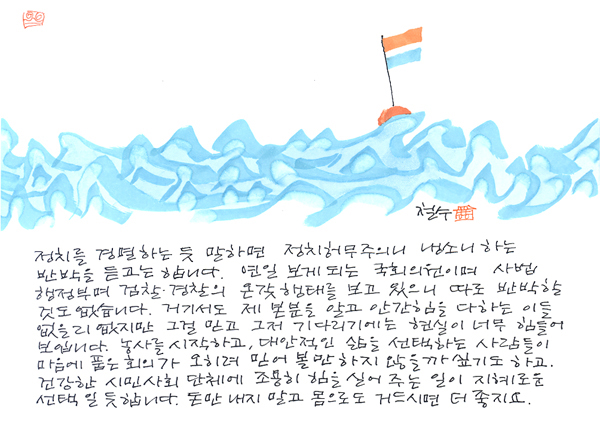 철수
정치를 경멸하는 듯 말하면 정치허무주의니 냉소니 하는
반박을 듣고는 합니다. 연일 보게 되는 국회의원이며 사법
행정부며 검찰·경찰의 온갖 행태를 보고 있으니 따로 반박할
것도 없습니다. 거기서도 제 본분을 알고 안간힘을 다하는 이들
없을리 없지만 그걸 믿고 그저 기다리기에는 현실이 너무 힘들어
보입니다. 농사를 시작하고, 대안적인 삶을 선택하는 사람들이
마음에 품은 회의가 오히려 믿어 볼 만하지 않을까 싶기도 하고.
건강한 시민사회 단체에 조용히 힘을 실어 주는 일이 지혜로운
선택일 듯합니다. 돈만 내지 말고 몸으로도 거드시면 더 좋지요.